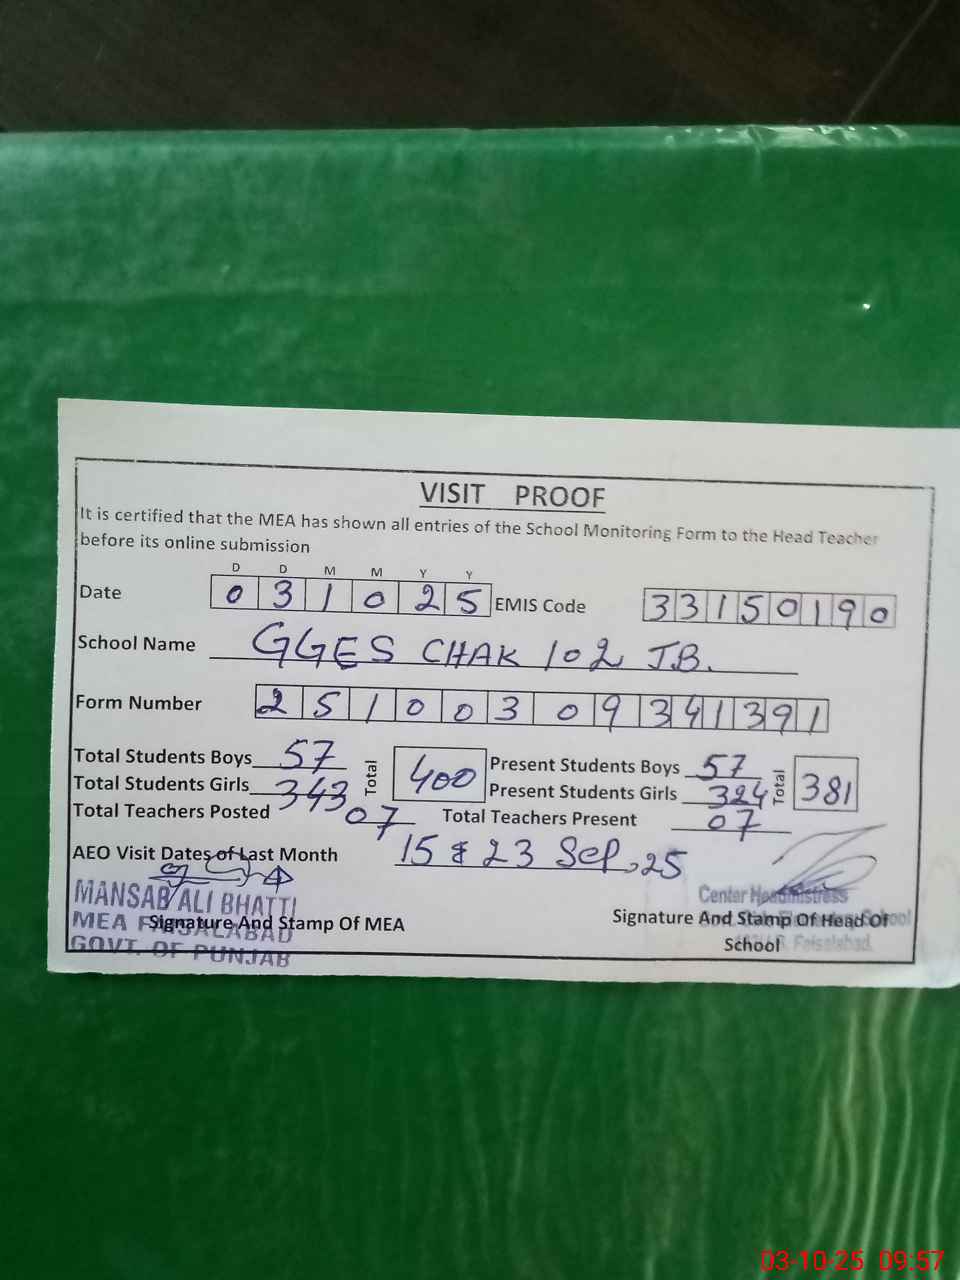 VISIT PROOF
It is certified that the MEA has shown all entries of the School Monitoring Form to the Head Teacher
before its online submission
D D M M Y Y
Date 0 3 1 0 2 5 EMIS Code 3 3 1 5 0 1 9 0
School Name GGES CHAK 102 JB.
Form Number 2 5 1 0 0 3 0 9 3 4 1 3 9 1
Total Students Boys 57 Total 400 Present Students Boys 57 Total 381
Total Students Girls 343 Present Students Girls 324
Total Teachers Posted 07 Total Teachers Present 07
AEO Visit Dates of Last Month 15 & 23 Sep, 25
MANSAB ALI BHATTI
MEA FAISALABAD
GOVT. OF PUNJAB
Signature And Stamp Of MEA
Center Headmistress
School
Faisalabad.
Signature And Stamp Of Head Of
School
03-10-25 09:57